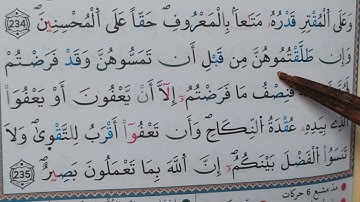 وَعَلَى اَلْمُقْتِرِ قَدْرُهُۥ مَتَٰعاَۢ بِالْمَعْرُوفِ حَقّاً عَلَى اَلْمُحْسِنِينَ 234
وَإِن طَلَّقْتُمُوهُنَّ مِن قَبْلِ أَن تَمَسُّوهُنَّ وَقَدْ فَرَضْتُمْ
فَنِصْفُ مَا فَرَضْتُمُۥٓ إِلَّآ أَنْ يَّعْفُونَ أَوْ يَعْفُوَاْ
اَلذِے بِيَدِهِۦ عُقْدَةُ اُلنِّكَاحِ وَأَن تَعْفُوٓاْ أَقْرَبُ لِلتَّقْو۪ىٰ وَلَا
تَنسَوُاْ اُلْفَضْلَ بَيْنَكُمُۥٓ إِنَّ اَللَّهَ بِمَا تَعْمَلُونَ بَصِيرٌ 235
مدّ مشبع 6 حركات